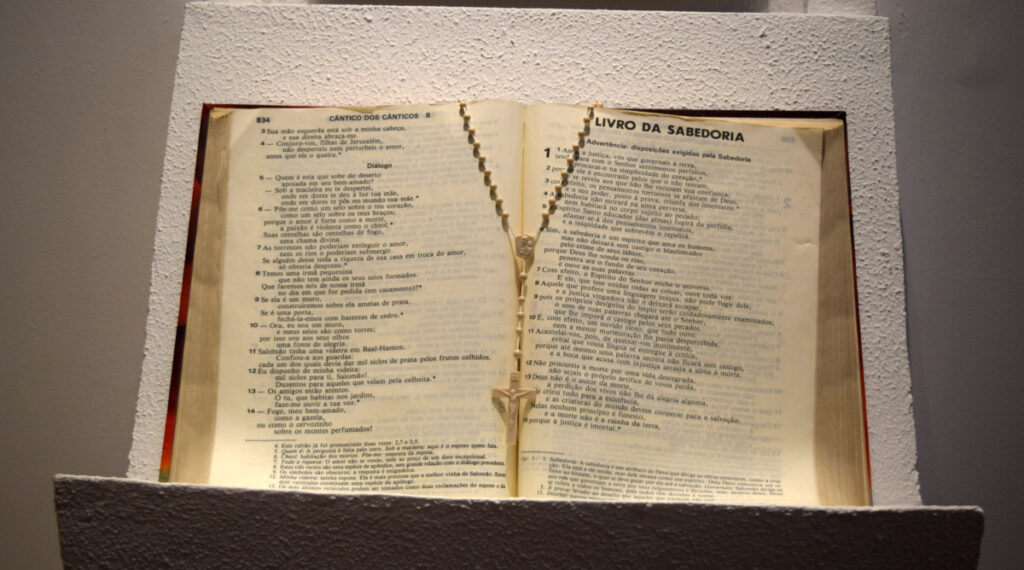 834
CÂNTICO DOS CÂNTICOS 8
3 Sua mão esquerda está sob a minha cabeça,
e sua direita abraça-me.
4 — Conjuro-vos, filhas de Jerusalém,
não desperteis nem perturbeis o amor,
antes que ele o queira.*
Diálogo
5 — Quem é esta que sobe do deserto
apoiada em seu bem-amado?
— Sob a macieira eu te despertei,
onde em dores te deu à luz tua mãe,
onde em dores te pôs no mundo tua mãe.*
6 — Põe-me como um selo sobre o teu coração,
como um selo sobre os teus braços;
porque o amor é forte como a morte,
a paixão é violenta como o cheol.*
Suas centelhas são centelhas de fogo,
uma chama divina.
7 As torrentes não poderiam extinguir o amor,
nem os rios o poderiam submergir.
Se alguém desse toda a riqueza de sua casa em troca do amor,
só obteria desprezo.*
8 Temos uma irmã pequenina
que não tem ainda os seus seios formados.
Que faremos nós de nossa irmã
no dia em que for pedida (em casamento)?*
9 Se ela é um muro,
construiremos sobre ela ameias de prata.
Se é uma porta,
fechá-la-emos com batentes de cedro.*
10 — Ora, eu sou um muro,
e meus seios são como torres;
por isso sou aos seus olhos
uma fonte de alegria.
11 Salomão tinha uma videira em Baal-Hamon.
Confiou-a aos guardas:
cada um dos quais devia dar mil siclos de prata pelos frutos colhidos.
12 Eu disponho de minha videira:
mil siclos para ti, Salomão!
Duzentos para aqueles que velam pela colheita.*
13 — Os amigos estão atentos.
Ó tu, que habitas nos jardins,
faze-me ouvir a tua voz.*
14 — Foge, meu bem-amado,
como a gazela,
ou como o cervozinho
sobre os montes perfumados!
4. Este refrão já foi pronunciado duas vezes: 2,7 e 3,5.
LIVRO DA SABEDORIA
Advertência: disposições exigidas pela Sabedoria
1
1 Amai a justiça, vós que governais a terra,
tende para com o Senhor sentimentos perfeitos,
e procurai-o na simplicidade do coração,*
2 porque ele é encontrado pelos que o não tentam,
e se revela aos que não lhe recusam sua confiança;
3 com efeito, os pensamentos tortuosos se afastam de Deus,
e o seu poder, posto à prova, triunfa dos insensatos.*
4 A Sabedoria não entrará na alma perversa,
nem habitará no corpo sujeito ao pecado;
5 o Espírito Santo educador (das almas) fugirá da perfídia,
afastar-se-á dos pensamentos insensatos,
e a iniqüidade que sobrevém o repelirá.
6 Sim, a sabedoria é um espírito que ama os homens,
mas não deixará sem castigo o blasfemador
pelo crime de seus lábios,
porque Deus lhe sonda os rins,
penetra até o fundo de seu coração,
e ouve as suas palavras.
7 Com efeito, o Espírito do Senhor enche o universo,
E ele, que tem unidas todas as coisas, ouve toda voz.
8 Aquele que profere uma linguagem iníqua, não pode fugir dele,
e a justiça vingadora não o deixará escapar;
9 pois os próprios desígnios do ímpio serão cuidadosamente examinados;
o som de suas palavras chegará até o Senhor,
que lhe imporá o castigo pelos seus pecados.
10 É, com efeito, um ouvido cioso, que tudo ouve:
nem a menor murmuração lhe passa despercebida.
11 Acautelai-vos, pois, de queixar-vos inutilmente,
evitai que vossa língua se entregue à crítica,
porque até mesmo uma palavra secreta não ficará sem castigo,
e a boca que acusa com injustiça arrasta a alma à morte.
12 Não procureis a morte por uma vida desregrada,
não sejais o próprio artífice de vossa perda.
13 Deus não é o autor da morte,
a perdição dos vivos não lhe dá alegria alguma.
criou tudo para a existência,
e as criaturas do mundo devem cooperar para a salvação.
Nelas nenhum princípio é funesto,
e a morte não é a rainha da terra,
15 porque a justiça é imortal.*